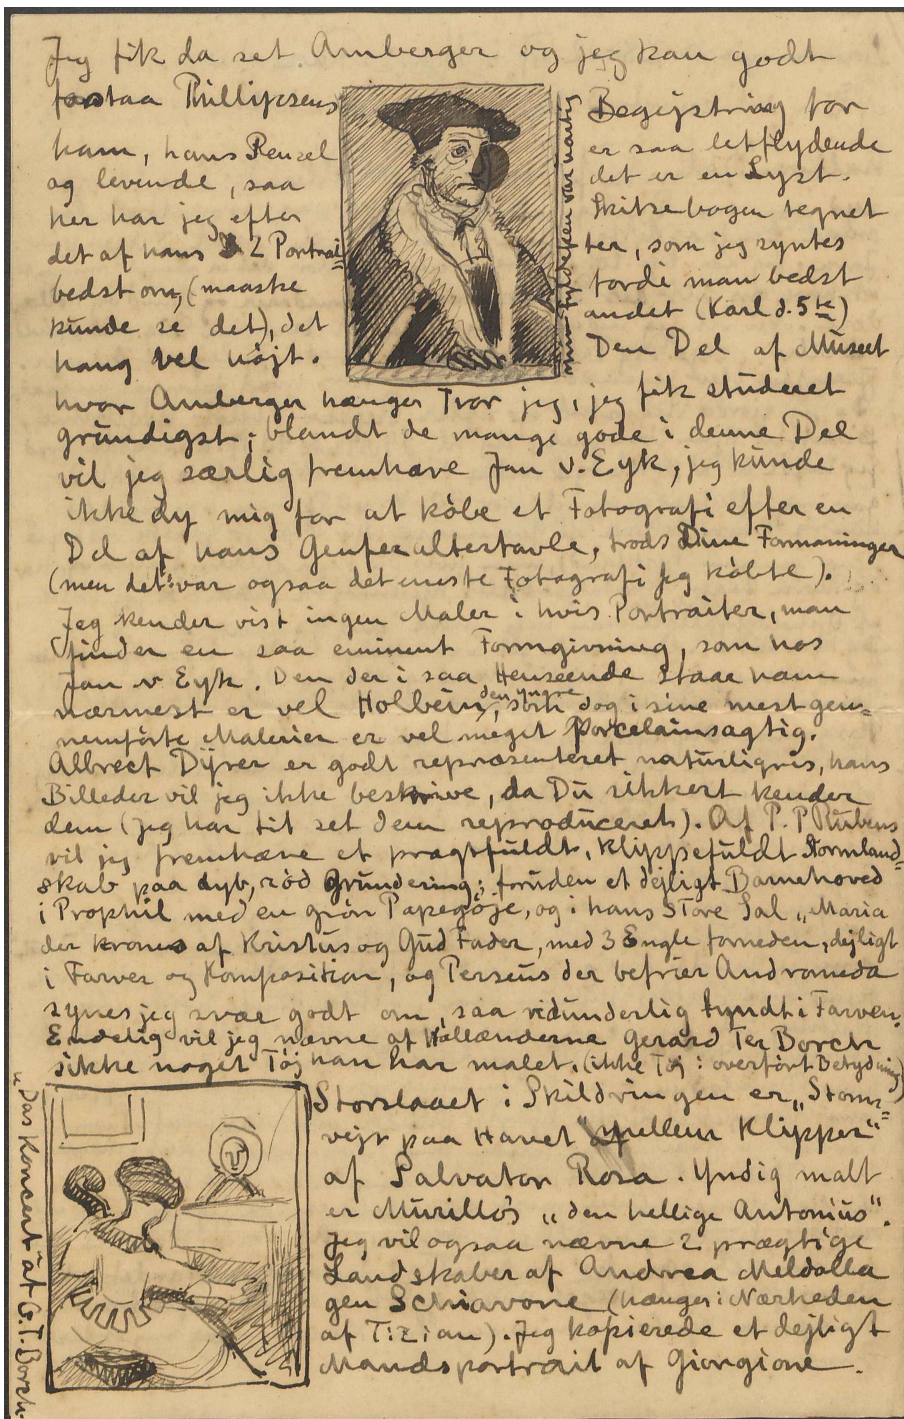 Jeg fik da set Amberger og jeg kan godt
forstaa Phillipsens Begejstring for
ham, hans Pensel er saa letflydende
og levende, saa det er en Lyst.
her har jeg efter Skitsebogen tegnet
det af hans 2 Portrai= ter, som jeg syntes
bedst om, (maaske fordi man bedst
kunde se det), det andet (Karl d. 5te)
hang vel højt. Den Del af Museet
min Fyldepen var uartig
hvor Amberger hænger tror jeg, jeg fik studeret
grundigst; blandt de mange gode i denne Del
vil jeg særlig fremhæve Jan v. Eyk, jeg kunde
ikke dy mig for at købe et Fotografi efter en
Del af hans Genferaltertavle, trods Dine Formaninger
(men det var ogsaa det eneste Fotografi jeg købte).
Jeg kender vist ingen Maler i hvis Portraiter, man
finder en saa eminent Formgivning, som hos
Jan v Eyk. Den der i saa Henseende staar ham
nærmest er vel Holbein den yngre, som dog i sine mest gen=
nemførte Malerier er vel meget porcelainsagtig.
Albrect Dyrer er godt repræsenteret naturligvis, hans
Billeder vil jeg ikke beskrive, da Du sikkert kender
dem (jeg har tit set dem reproduceret). Af P. P Rubens
vil jeg fremhæve et pragtfuldt, klippefuldt Stormland=
skab paa dyb, rød Grundering; foruden et dejligt Barnehoved
i Prophil med en grøn Papegøje, og i hans Store Sal „Maria
der krones af Kristus og Gud Fader, med 3 Engle forneden, dejligt
i Farver og Komposition, og Perseus der befrier Andromeda
synes jeg svær godt om, saa vidunderlig tyndt i Farven.
Endelig vil jeg nævne af Hollænderne Gerard Ter Borch
sikke noget Tøj han har malet. (ikke Tøj i overført Betydning)
Storslaaet i Skildringen er „Storm=
vejr paa Havet mellem Klipper“
af Salvator Rosa. Yndig malt
er Murillos „den hellige Antonius“.
Jeg vil ogsaa nævne 2 prægtige
Landskaber af Andrea Meldolla
gen Schiavone (hænger i Nærheden
af Tizian). Jeg kopierede et dejligt
Mandsportrait af Giorgione.
„Das Koncert“ af G. T. Borch.